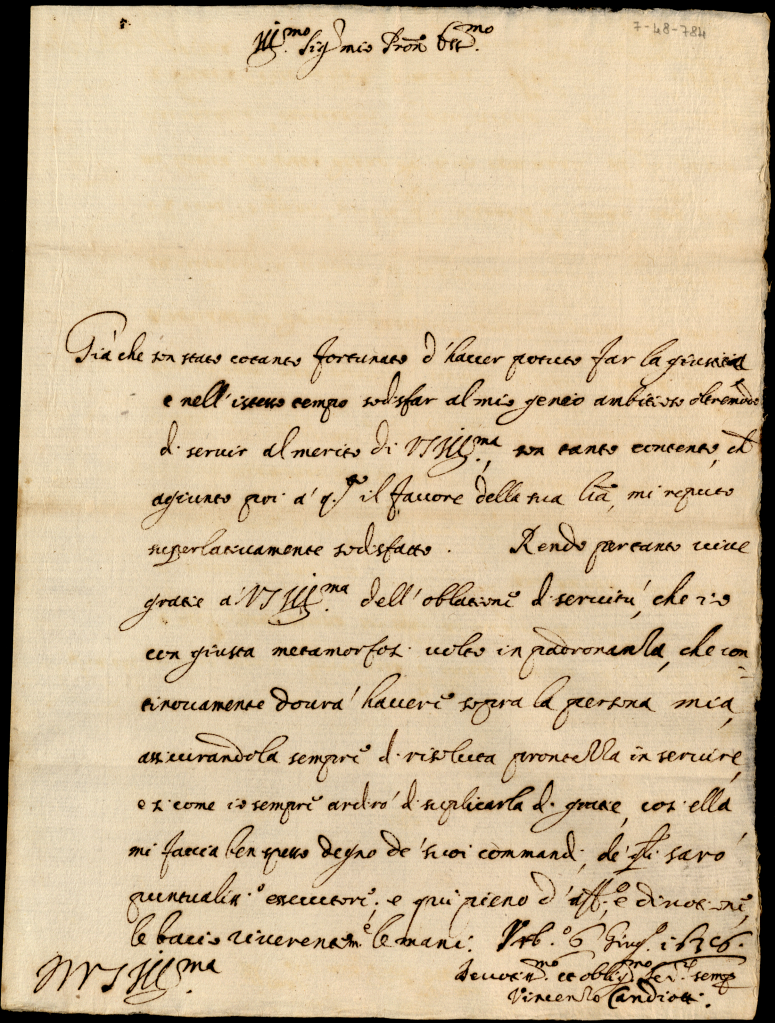 7-48-784
Ill.mo Sig.r mio Pron Oss.mo
Già che son stato cotanto fortunato d'haver potuto far la giustitia
e nell'istesso tempo sodisfar al mio genio ambitioso oltremodo
di servir al merito di VS Ill.ma, son tanto contento, ch'
agiunto poi a' q.to il favore della sua l̃ra, mi reputo
superlativamente sodisfatto. Rendo pertanto vive
gratie a' VS Ill.ma dell'oblationi di servitù, che io
con giusta metamorfosi volto in padronanza, che con=
tinovamente dovrà havere sopra la persona mia,
assicurandola sempre di risoluta prontezza in servire,
e si come io sempre ardirò di suplicarla di gratie, così ella
mi faccia ben spesso degno de' suoi commandi, de' q̃li sarò
puntualiss.o essecutore; e qui pieno d'aff.o e divotione,
le bacio riverentem.e le mani. Urb.o 6 Giug.o
Devotiss.mo et oblig.mo Se.re semp
Vincenzo Candiotti.
VS Ill.ma